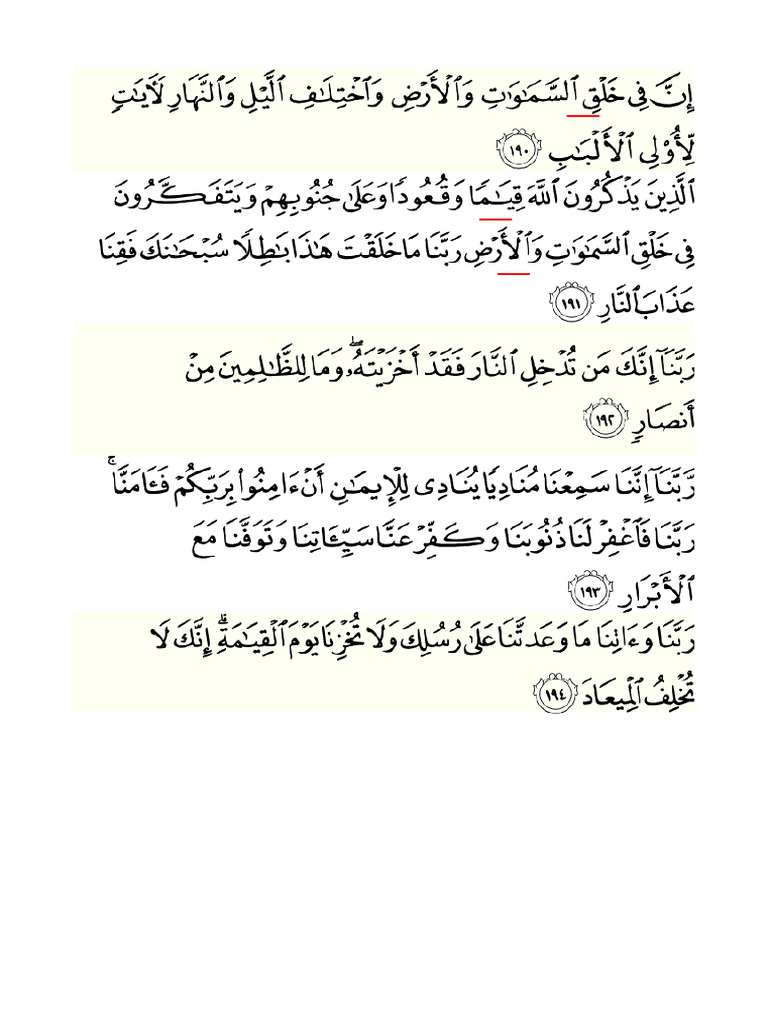 إِنَّ فِي خَلْقِ ٱلسَّمَـٰوَٰتِ وَٱلْأَرْضِ وَٱخْتِلَـٰفِ ٱلَّيْلِ وَٱلنَّهَارِ لَـَٔايَـٰتٍ
لِّأُو۟لِى ٱلْأَلْبَـٰبِ ١٩٠
ٱلَّذِينَ يَذْكُرُونَ ٱللَّهَ قِيَـٰمًا وَقُعُودًا وَعَلَىٰ جُنُوبِهِمْ وَيَتَفَكَّرُونَ
فِي خَلْقِ ٱلسَّمَـٰوَٰتِ وَٱلْأَرْضِ رَبَّنَا مَا خَلَقْتَ هَـٰذَا بَـٰطِلًا سُبْحَـٰنَكَ فَقِنَا
عَذَابَ ٱلنَّارِ ١٩١
رَبَّنَآ إِنَّكَ مَن تُدْخِلِ ٱلنَّارَ فَقَدْ أَخْزَيْتَهُۥ ۖ وَمَا لِلظَّـٰلِمِينَ مِنْ
أَنصَارٍ ١٩٢
رَّبَّنَآ إِنَّنَا سَمِعْنَا مُنَادِيًا يُنَادِى لِلْإِيمَـٰنِ أَنْ ءَامِنُوا۟ بِرَبِّكُمْ فَـَٔامَنَّا ۚ
رَبَّنَا فَٱغْفِرْ لَنَا ذُنُوبَنَا وَكَفِّرْ عَنَّا سَيِّـَٔاتِنَا وَتَوَفَّنَا مَعَ
ٱلْأَبْرَارِ ١٩٣
رَبَّنَا وَءَاتِنَا مَا وَعَدتَّنَا عَلَىٰ رُسُلِكَ وَلَا تُخْزِنَا يَوْمَ ٱلْقِيَـٰمَةِ ۗ إِنَّكَ لَا
تُخْلِفُ ٱلْمِيعَادَ ١٩٤